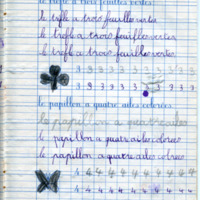 le trèfle a trois feuilles vertes
le trefle a trois feuilles vertes
le trèfle a trois feuilles vertes
le trefle a trois feuilles vertes
3 3 3 3 3 3 3
3 3 3 3 3 3 3
le papillon a quatre ailes colorées
le papillon a quatre ailes
le papillon a quatre ailes colorees
le papillon a quatre ailes colorees
4 4 4 4 4 4 4 4
4 4 4 4 4 4 4 4